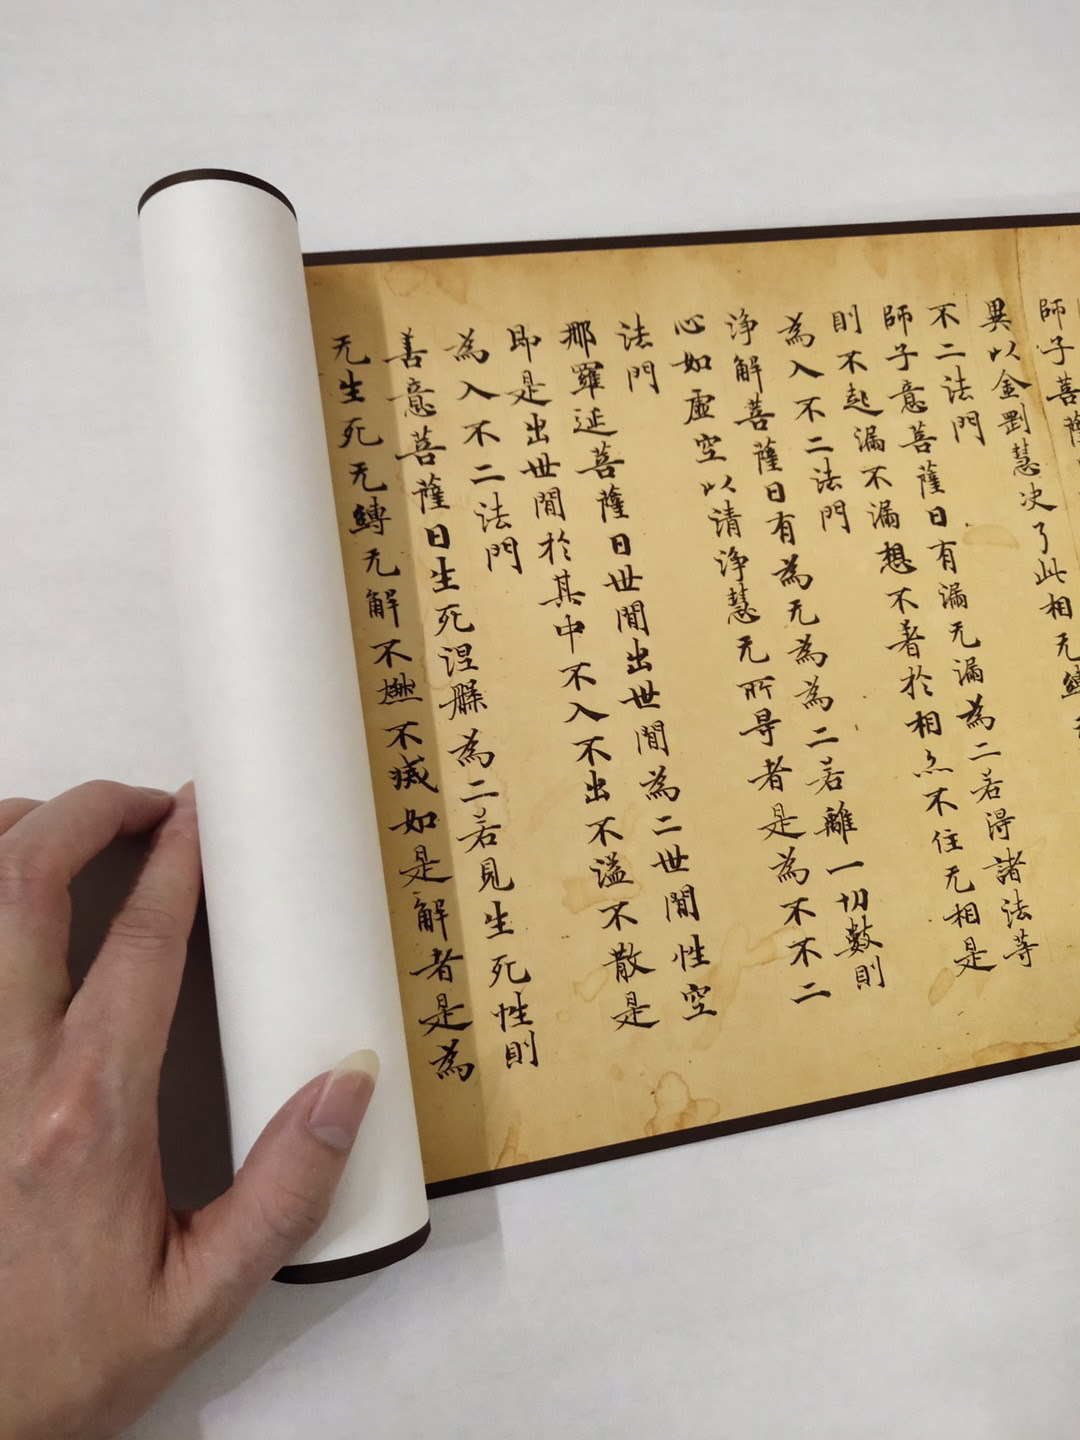 師子菩薩
異以金剛慧决了此相无縛
不二法門
師子意菩薩曰有漏无漏為二若得諸法等
則不起漏不漏想不著於相亦不住无相是
為入不二法門
淨解菩薩曰有為无為為二若離一切數則
心如虛空以清淨慧无所㝵者是為不不二
法門
那羅延菩薩曰世間出世間為二世間性空
即是出世間於其中不入不出不溢不散是
為入不二法門
善意菩薩曰生死涅槃為二若見生死性則
无生死无縛无解不燃不滅如是解者是為